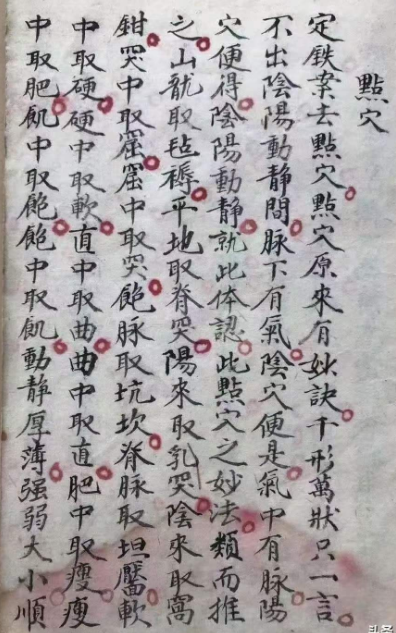 點穴
定鉄案去點穴點穴原來有妙訣千形萬狀只一言
不出陰陽動靜間脉下有氣陰穴便是氣中有脉陽
穴便得陰陽動靜就此体認此點穴之妙法類而推
之山龍取毡褥平地取脊突陽來取乳突陰來取窩
鉗突中取窟窟中取突飽脉取坑坎脊脉取坦靨軟
中取硬硬中取軟直中取曲曲中取直肥中取瘦瘦
中取肥飢中取飽飽中取飢動靜厚薄强弱大小順